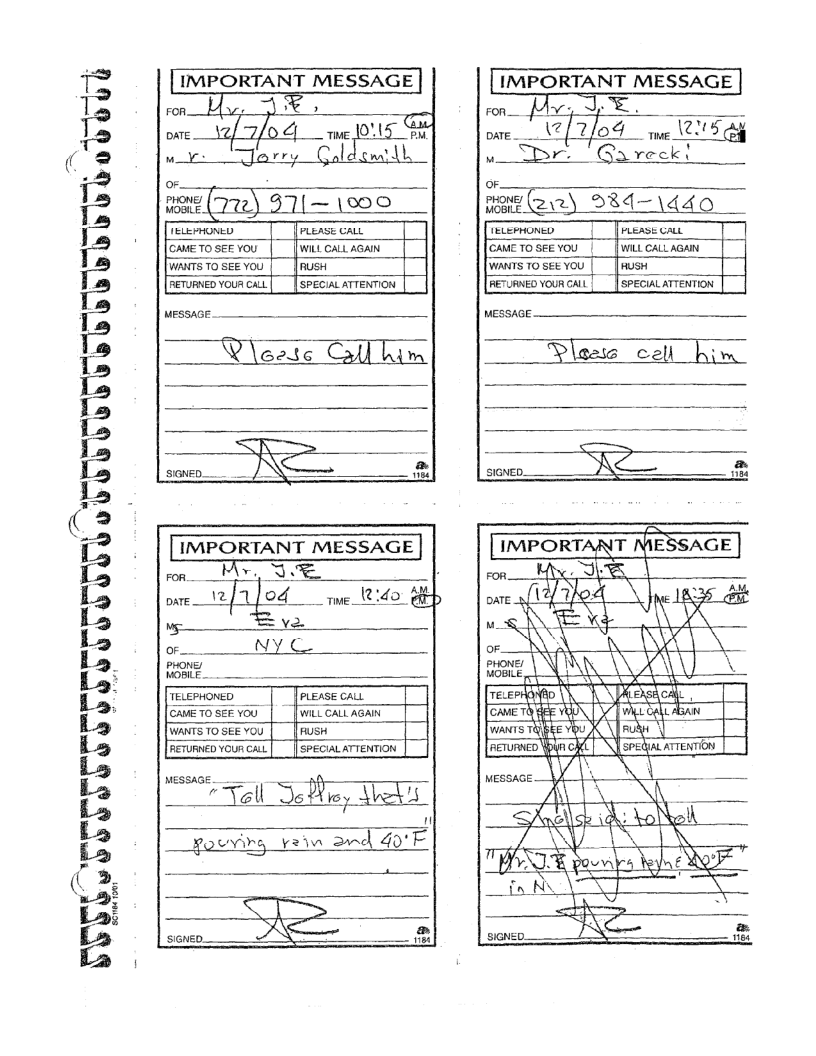 IMPORTANT MESSAGE
FOR Mr. J.E.
DATE 12/7/04 TIME 10:15 A.M. P.M.
M r. Jerry Goldsmith
OF
PHONE/ MOBILE (772) 971-1000
TELEPHONED PLEASE CALL
CAME TO SEE YOU WILL CALL AGAIN
WANTS TO SEE YOU RUSH
RETURNED YOUR CALL SPECIAL ATTENTION
MESSAGE
Please Call him
SIGNED
1184
IMPORTANT MESSAGE
FOR Mr. J.E.
DATE 12/7/04 TIME 12:15
M Dr.
OF
PHONE/ MOBILE (212) 984-1440
TELEPHONED PLEASE CALL
CAME TO SEE YOU WILL CALL AGAIN
WANTS TO SEE YOU RUSH
RETURNED YOUR CALL SPECIAL ATTENTION
MESSAGE
Please call him
SIGNED
1184
IMPORTANT MESSAGE
FOR Mr. J.E
DATE 12/7/04 TIME 12:40 A.M. P.M.
Ms Eva
OF NYC
PHONE/ MOBILE
TELEPHONED PLEASE CALL
CAME TO SEE YOU WILL CALL AGAIN
WANTS TO SEE YOU RUSH
RETURNED YOUR CALL SPECIAL ATTENTION
MESSAGE
"Tell Jeffrey that's
pouring rain and 40°F"
SIGNED
1184
IMPORTANT MESSAGE
FOR Mr. J.E
DATE 12/7/04 TIME A.M. P.M.
M s Eva
OF
PHONE/ MOBILE
TELEPHONED PLEASE CALL
CAME TO SEE YOU WILL CALL AGAIN
WANTS TO SEE YOU RUSH
RETURNED YOUR CALL SPECIAL ATTENTION
MESSAGE
said: to tell
"Mr. J.E pouring 40°F"
in
SIGNED
1184
SC1184 10/01